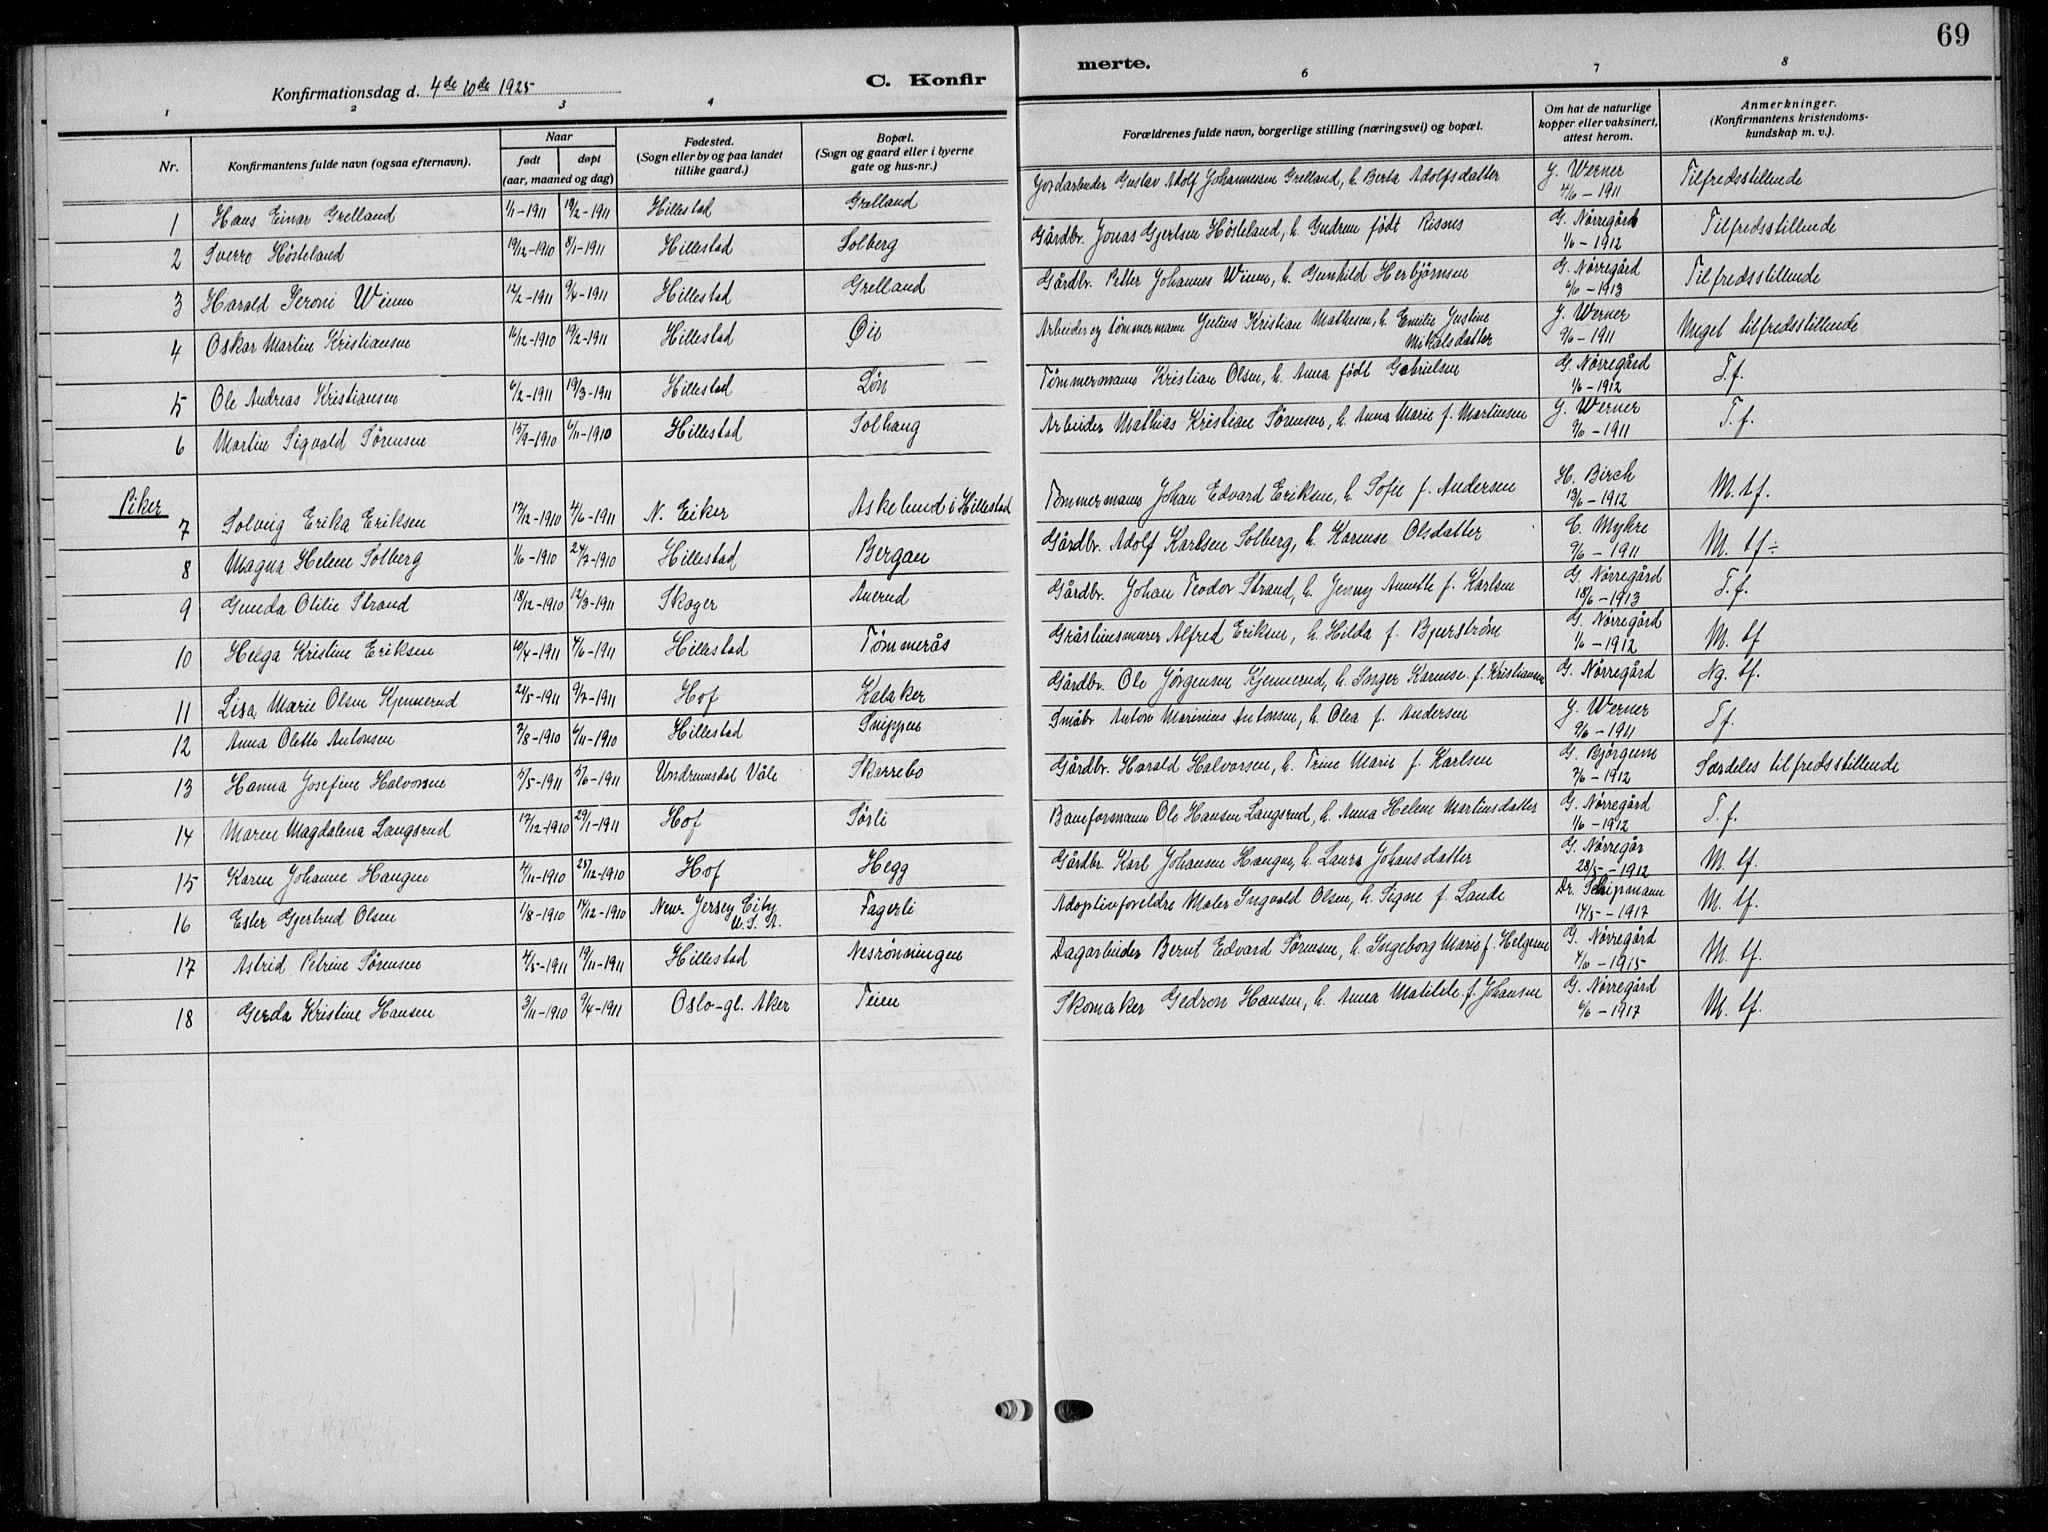 69
Konfirmationsdag d. 4de 10de 1925
C. Konfirmerte.
1 2 3 4 6 7 8
Nr.
Konfirmantens fulde navn (ogsaa efternavn).
Naar
født døpt
(aar, maaned og dag)
Fødested.
(Sogn eller by og paa landet
tillike gaard.)
Bopæl.
(Sogn og gaard eller i byerne
gate og hus-nr.)
Forældrenes fulde navn, borgerlige stilling (næringsvei) og bopæl.
Om hat de naturlige
kopper eller vaksinert,
attest herom.
Anmerkninger.
(Konfirmantens kristendoms-
kundskap m. v.).
1 Hans Einar Grelland 1/1-1911 19/2-1911 Hillestad Grelland Jordarbeider Gustav Adolf Johannessen Grelland, h. Berta Adolfsdatter J. Werner 4/6-1911 Tilfredsstillende
2 Sverro Høsteland 19/12-1910 8/1-1911 Hillestad Solberg Gårdbr. Jonas Gjertsen Høsteland, h. Gudrun født Risnes G. Nørregård 1/6-1912 Tilfredsstillende
3 Harald Wium 12/2-1911 9/4-1911 Hillestad Grelland Gårdbr. Petter Johannes Wium, h. Gunhild Herbjørnsen G. Nørregård 6/6-1913 Tilfredsstillende
4 Oskar Martin Kristiansen 16/12-1910 19/2-1911 Hillestad Øie Arbeider og tømmermann Julius Kristian Mathesen, h. Emilie Justine
Mikalsdatter J. Werner 9/6-1911 Meget tilfredsstillende
5 Ole Andreas Kristiansen 6/2-1911 19/3-1911 Hillestad Løn Tømmermann Kristian Olsen, h. Anna født Gabrielsen G. Nørregård 1/6-1912 T.f.
6 Martin Sigvald Sørensen 15/9-1910 6/11-1910 Hillestad Solhaug Arbeider Mathias Kristian Sørensen, h. Anna Marie f. Martinsen J. Werner 9/6-1911 T.f.
Piker
7 Solveig Erika Eriksen 17/12-1910 4/6-1911 N. Eiker Askelund i Hillestad Tømmermann Johan Edvard Eriksen, h. Sofie f. Andersen H. Birch 13/6-1912 M.tf.
8 Magna Helene Solberg 1/6-1910 24/7-1910 Hillestad Bergan Gårdbr. Adolf Karlsen Solberg, h. Karense Olsdatter C. Myhre 9/6-1911 M. tf÷
9 Gunda Otilie Strand 18/12-1910 12/3-1911 Skoger Anerud Gårdbr. Johan Teodor Strand, h. Jenny Annette f. Karlsen G. Nørregård 18/6-1913 T.f.
10 Helga Kristine Eriksen 10/4-1911 4/6-1911 Hillestad Tømmerås Gråstensmurer Alfred Eriksen, h. Hilda f. Bjurstrøm G. Nørregård 1/6-1912 M. tf
11 Lisa Marie Olsen Kjennerud 21/5-1911 9/7-1911 Hof Kalaker Gårdbr. Ole Jørgensen Kjennerud, h. Inger Karense f. Kristiansen G. Nørregård Ng. tf.
12 Anna Olette Antonsen 7/8-1910 6/11-1910 Hillestad Snippen Småbr. Anton Marinius Antonsen, h. Olea f. Andersen J. Werner 9/6-1911 Tf.
13 Hanna Josefine Halvorsen 5/5-1911 5/6-1911 Undrumsdal Våle Skarrebo Gårdbr. Harald Halvorsen, h. Trine Marie f. Karlsen G. Bjørgum 7/6-1912 Særdeles tilfredsstillende
14 Maren Magdalena Langsrud 17/12-1910 29/1-1911 Hof Sørli Baneformann Ole Hansen Langsrud, h. Anna Helene Martinsdatter G. Nørregård 1/6-1912 T.f.
15 Karen Johanne Haugen 4/11-1910 25/12-1910 Hof Hegg Gårdbr. Karl Johansen Haugen, h. Laura Johansdatter G. Nørregår 28/5-1912 M. tf.
16 Ester Gjertrud Olsen 1/8-1910 14/12-1910 New-Jersey City
U.S.A. Fagerli Adoptivforeldre Maler Ingvald Olsen, h. Signe f. Lande Dr. Schipmann 14/5-1917 M. tf.
17 Astrid Petrine Sørensen 4/5-1911 19/11-1911 Hillestad Nesrønningen Dagarbeider Bernt Edvard Sørensen, h. Ingeborg Marie f. Helgesen G. Nørregård 4/6-1915 M. tf.
18 Gerda Kristine Hansen 3/11-1910 9/4-1911 Oslo-gl. Aker Teien Skomaker Gedron Hansen, h. Anna Matilde f. Johansen G. Nørregård 6/6-1917 M. tf.